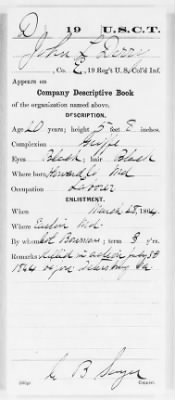 D 19 U.S.C.T.
John L Derry
, Co. E, 19 Reg't U.S. Col'd Inf.
Appears on
Company Descriptive Book
of the organization named above.
DESCRIPTION.
Age 20 years; height 5 feet 8 inches.
Complexion
Eyes Black, hair Black
Where born, Howard Co, Md
Occupation Laborer
ENLISTMENT.
When March 28, 1864.
Where Easton Md.
By whom Col Bowman; term 3 y'rs.
Remarks Killed in action July 30
1864 before Petersburg Va
C B
Copyist.